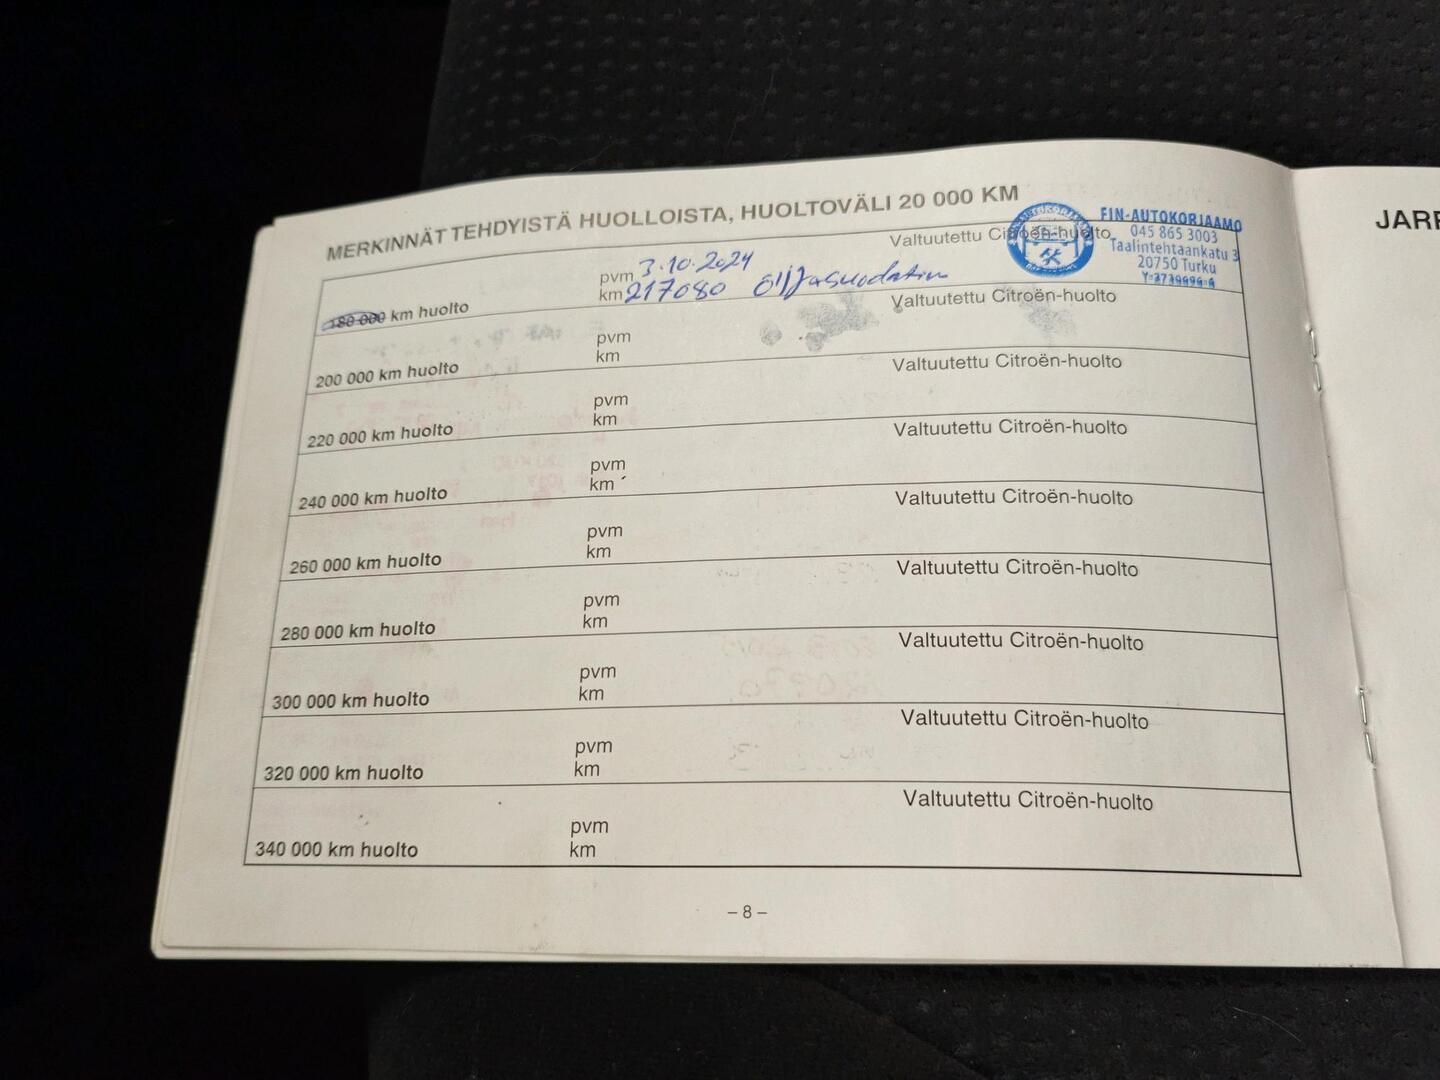 MERKINNÄT TEHDYISTÄ HUOLLOISTA, HUOLTOVÄLI 20 000 KM
FIN-AUTOKORJAAMO
045 865 3003
Taalintehtaankatu 3
20750 Turku
Valtuutettu Citroën-huolto
pvm 3.10.2024
km 217080 Öljyjasuodatin
180 000 km huolto
Valtuutettu Citroën-huolto
pvm
km
200 000 km huolto
Valtuutettu Citroën-huolto
pvm
km
220 000 km huolto
Valtuutettu Citroën-huolto
pvm
km
240 000 km huolto
Valtuutettu Citroën-huolto
pvm
km
260 000 km huolto
Valtuutettu Citroën-huolto
pvm
km
280 000 km huolto
Valtuutettu Citroën-huolto
pvm
km
300 000 km huolto
Valtuutettu Citroën-huolto
pvm
km
320 000 km huolto
Valtuutettu Citroën-huolto
pvm
km
340 000 km huolto
– 8 –
JARR